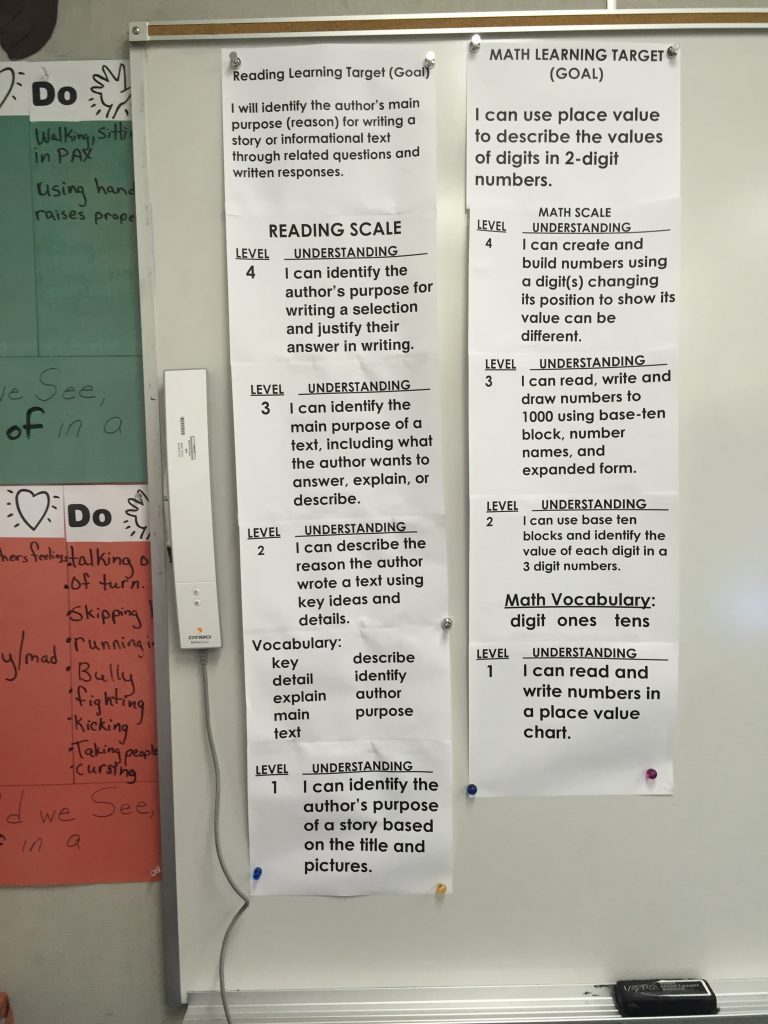 Do
Walking, Sitti
in PAX
using hand
raises prope
we See,
of in a
Do
hers feelings
talking o
of turn.
Skipping
y/mad
running i
Bully
fighting
Kicking
Taking people
cursing
d we See,
in a
Reading Learning Target (Goal)
I will identify the author's main
purpose (reason) for writing a
story or informational text
through related questions and
written responses.
READING SCALE
LEVEL UNDERSTANDING
4 I can identify the
author's purpose for
writing a selection
and justify their
answer in writing.
LEVEL UNDERSTANDING
3 I can identify the
main purpose of a
text, including what
the author wants to
answer, explain, or
describe.
LEVEL UNDERSTANDING
2 I can describe the
reason the author
wrote a text using
key ideas and
details.
Vocabulary:
key describe
detail identify
explain author
main purpose
text
LEVEL UNDERSTANDING
1 I can identify the
author's purpose
of a story based
on the title and
pictures.
MATH LEARNING TARGET
(GOAL)
I can use place value
to describe the values
of digits in 2-digit
numbers.
MATH SCALE
LEVEL UNDERSTANDING
4 I can create and
build numbers using
a digit(s) changing
its position to show its
value can be
different.
LEVEL UNDERSTANDING
3 I can read, write and
draw numbers to
1000 using base-ten
block, number
names, and
expanded form.
LEVEL UNDERSTANDING
2 I can use base ten
blocks and identify the
value of each digit in a
3 digit numbers.
Math Vocabulary:
digit ones tens
LEVEL UNDERSTANDING
1 I can read and
write numbers in
a place value
chart.
DYMO